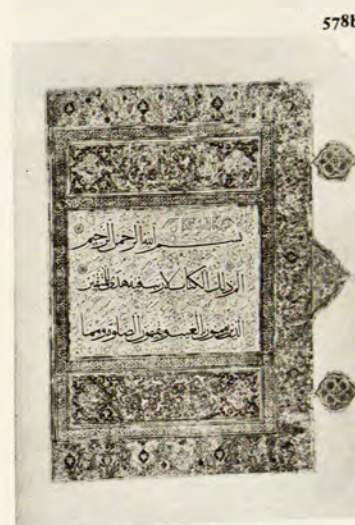 578b
بسم الله الرحمن الرحيم
الم ذلك الكتاب لا ريب فيه هدى للمتقين
الذين يؤمنون بالغيب ويقيمون الصلوة ومما